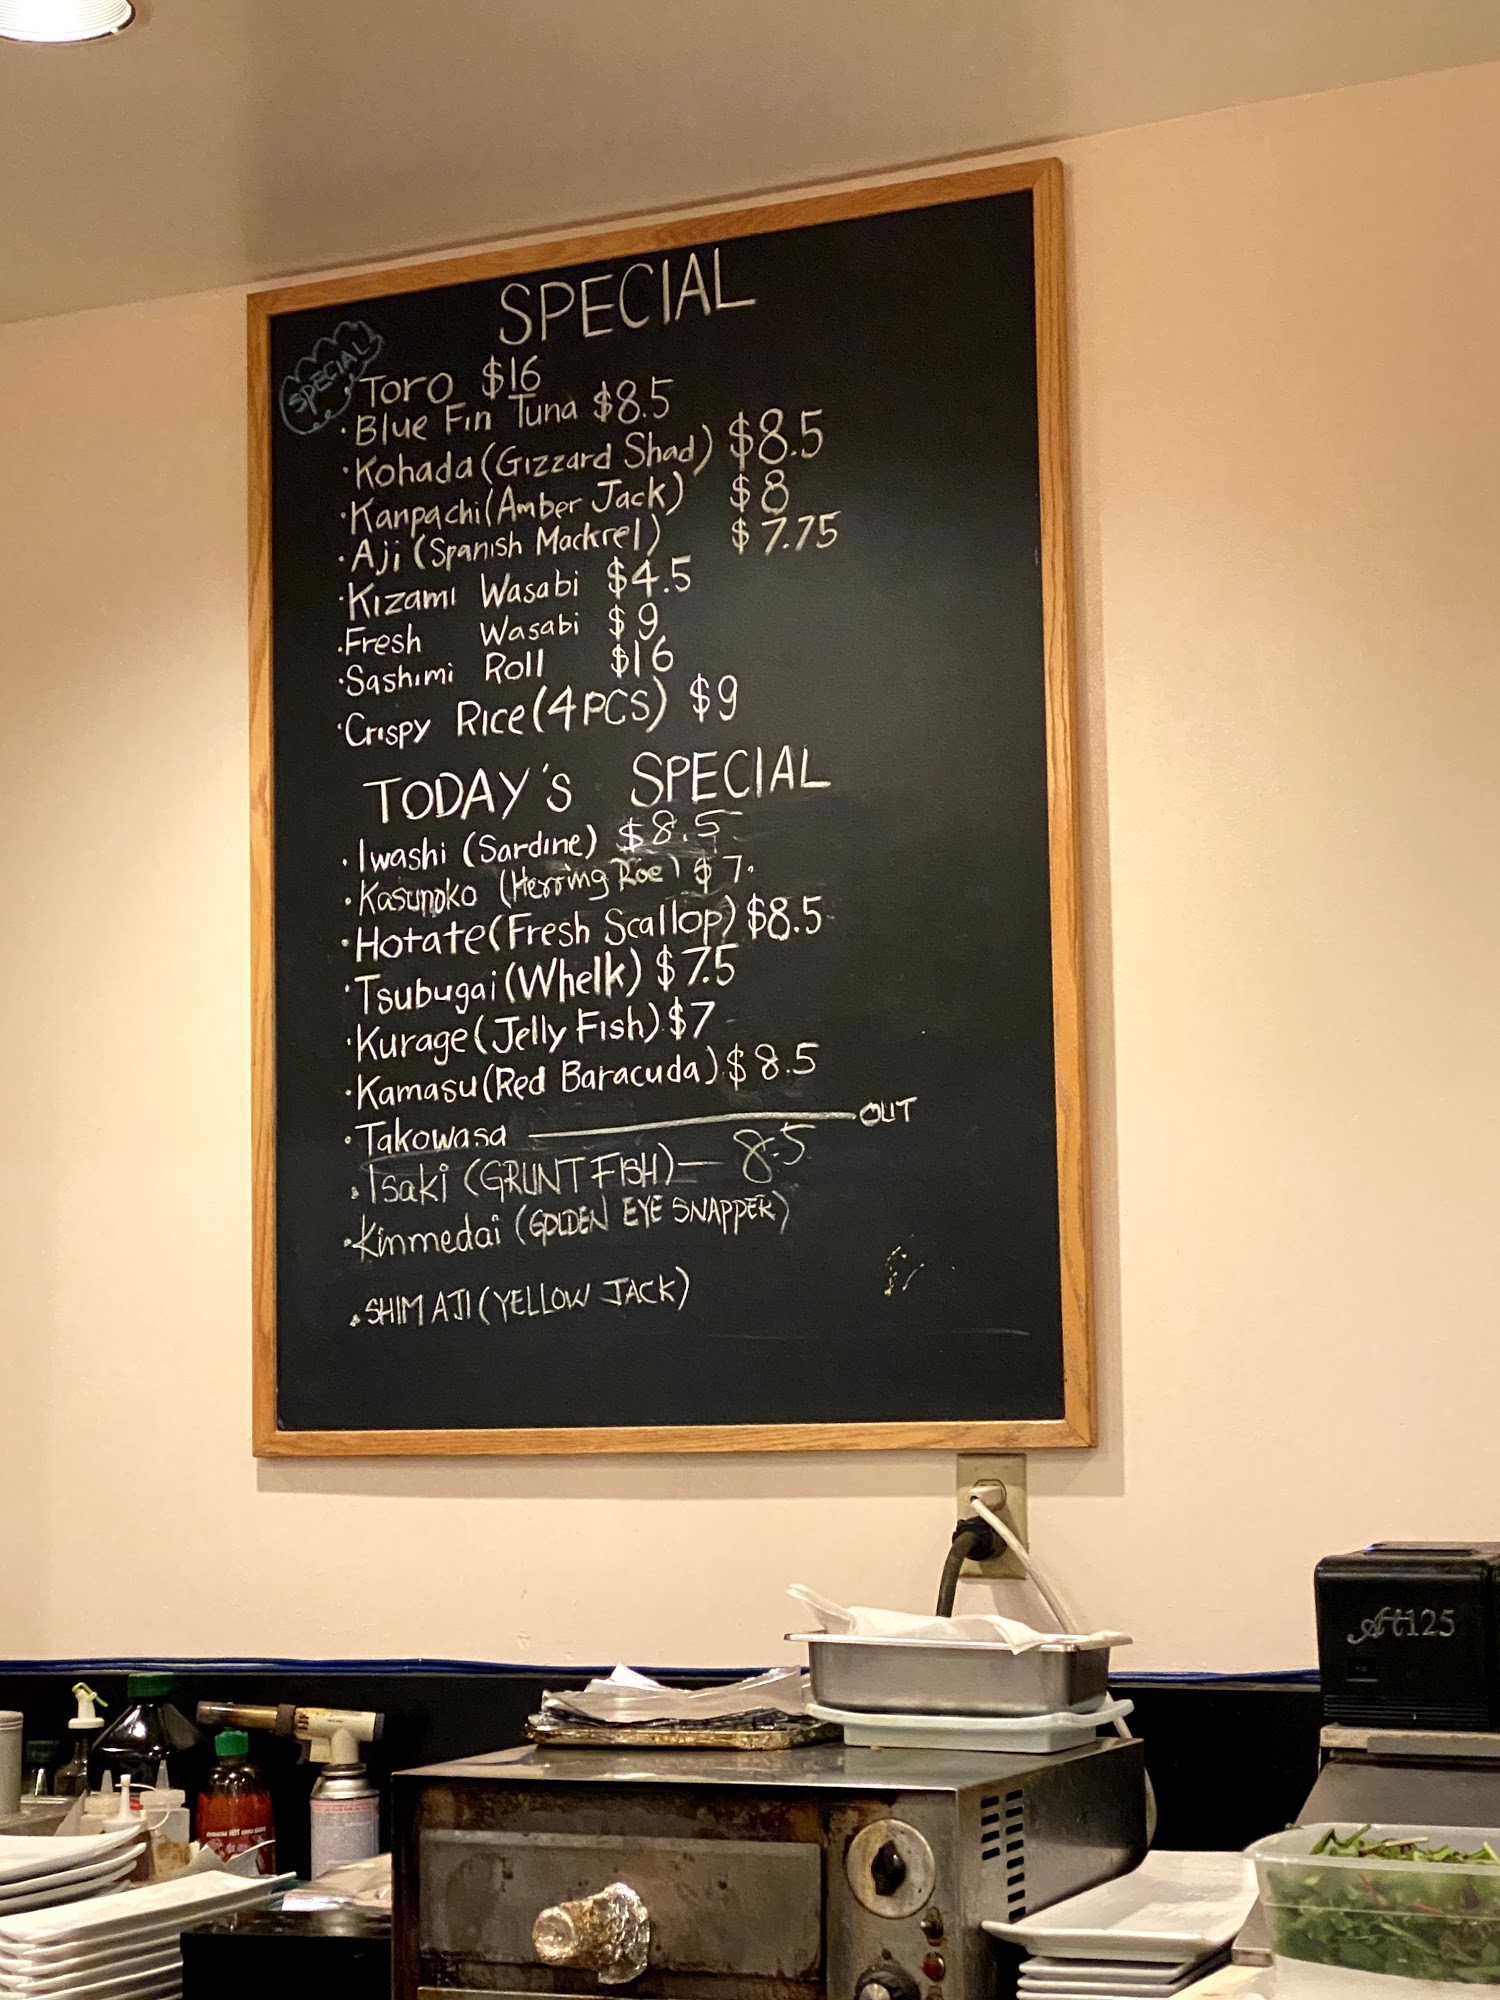 SPECIAL
SPECIAL
Toro $16
· Blue Fin Tuna $8.5
· Kohada (Gizzard Shad) $8.5
· Kanpachi (Amber Jack) $8
· Aji (Spanish Mackrel) $7.75
· Kizami Wasabi $4.5
· Fresh Wasabi $9
· Sashimi Roll $16
· Crispy Rice (4PCS) $9
TODAY'S SPECIAL
· Iwashi (Sardine) $8.5
· Kasunoko (Herring Roe) $7.
· Hotate (Fresh Scallop) $8.5
· Tsubugai (Whelk) $7.5
· Kurage (Jelly Fish) $7
· Kamasu (Red Baracuda) $8.5
· Takowasa — OUT
· Isaki (GRUNT FISH) — 8.5
· Kinmedai (GOLDEN EYE SNAPPER)
· SHIM AJI (YELLOW JACK)
Art125